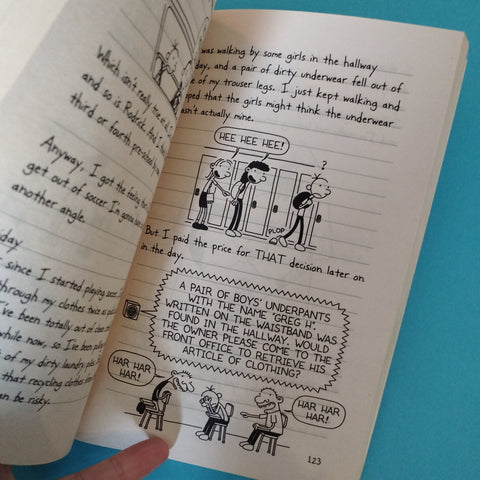 Which isn't really true at all
and so is Rodrick
third or fourth
Anyway, I got the feeling
get out of soccer I'm gonna
another angle.
day
since I started playing soccer
through my clothes twice as
I've been totally out of clean
while now, so I've been
of my dirty laundry
that recycling clothes
can be risky.
was walking by some girls in the hallway
day, and a pair of dirty underwear fell out of
e of my trouser legs. I just kept walking and
ped that the girls might think the underwear
asn't actually mine.
HEE HEE HEE!
?
PLOP
But I paid the price for THAT decision later on
in the day.
A PAIR OF BOYS' UNDERPANTS
WITH THE NAME "GREG H".
WRITTEN ON THE WAISTBAND WAS
FOUND IN THE HALLWAY. WOULD
THE OWNER PLEASE COME TO THE
FRONT OFFICE TO RETRIEVE HIS
ARTICLE OF CLOTHING?
HAR HAR
HAR!
HAR HAR
HAR!
123